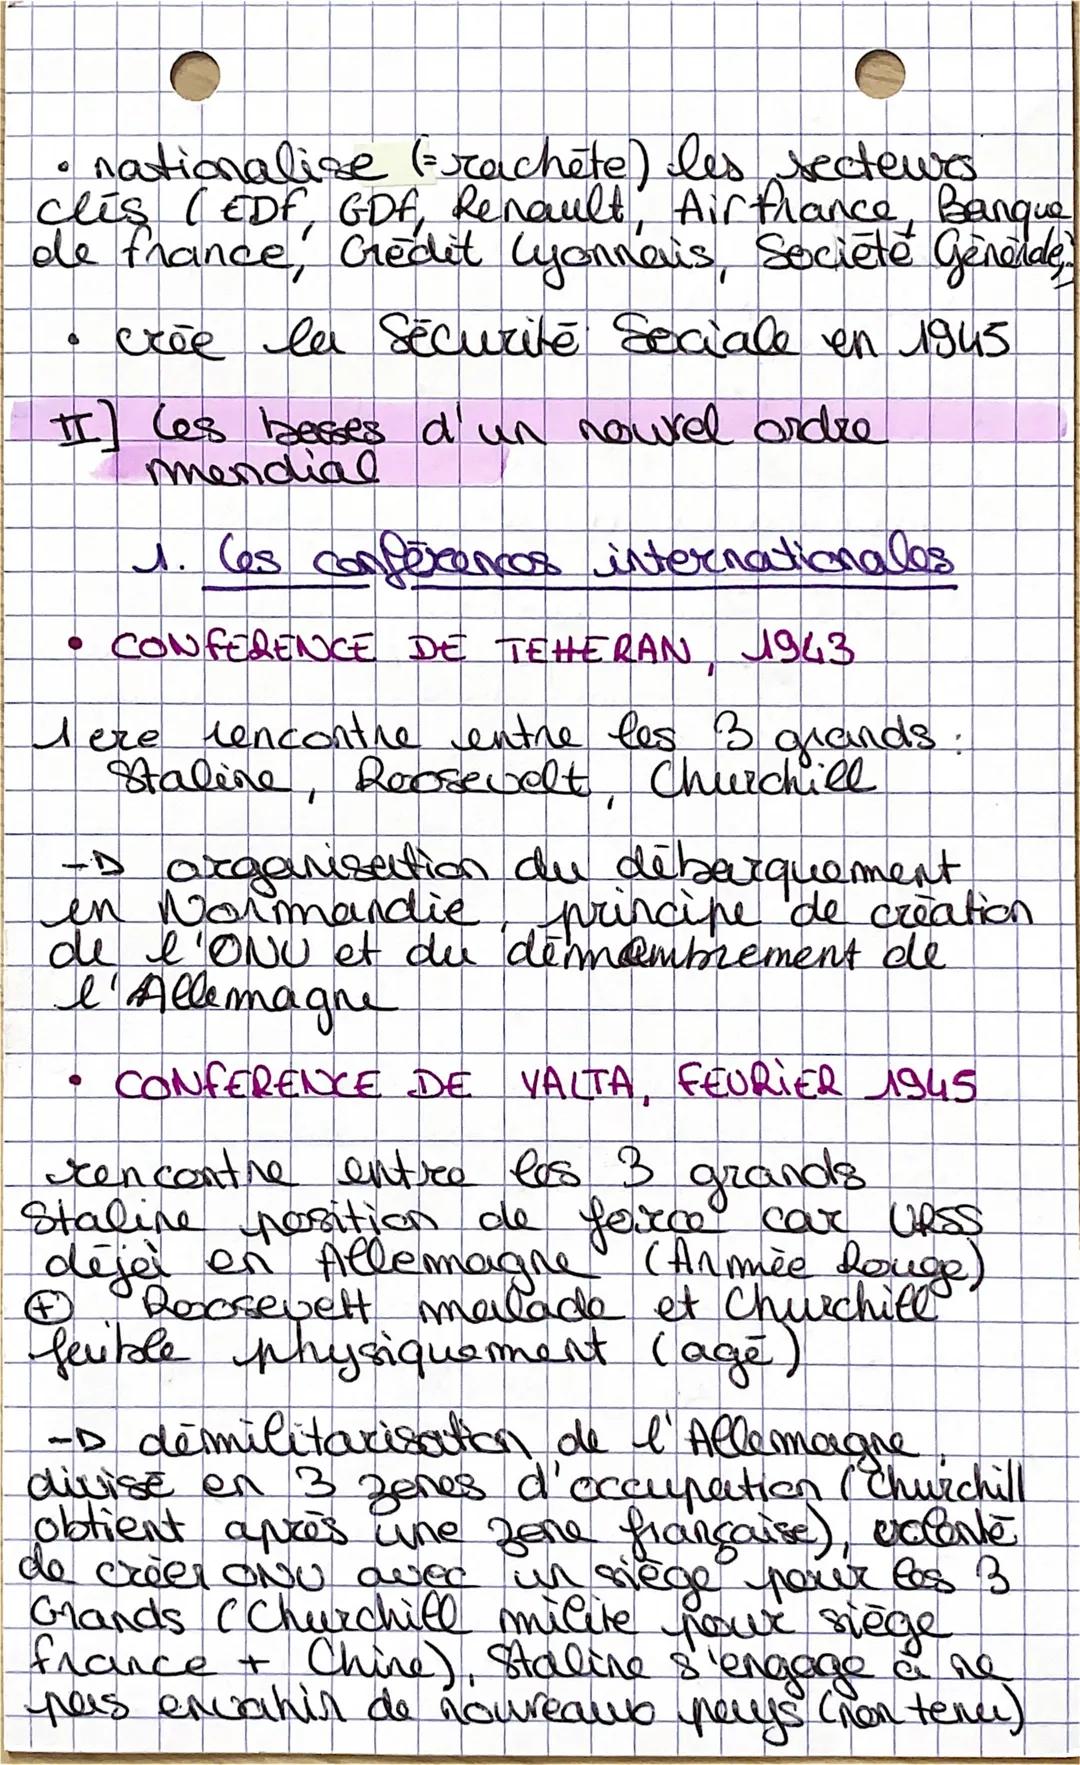 • nationalise (= rachète) les secteurs
clés (EDF, GDF, Renault, Air France, Banque
de France, Crédit Lyonnais, Société Générale,
• crée la Sécurité Sociale en 1945
II] Les bases d'un nouvel ordre
mondial
1. Les conférences internationales
• CONFERENCE DE TEHERAN, 1943
1ere rencontre entre les 3 grands :
Staline, Roosevelt, Churchill
→ organisation du débarquement
en Normandie, principe de création
de l'ONU et du démembrement de
l'Allemagne
• CONFERENCE DE YALTA, FEVRIER 1945
rencontre entre les 3 grands
Staline position de force car URSS
déjà en Allemagne (Armée Rouge)
⊕ Roosevelt malade et Churchill
faible physiquement (agé)
→ démilitarisation de l'Allemagne,
divisé en 3 zones d'occupation (Churchill
obtient après une zone française), volonté
de créer ONU avec un siège pour les 3
Grands (Churchill milite pour siège
France + Chine), Staline s'engage à ne
pas envahir de nouveaux pays (non tenu)